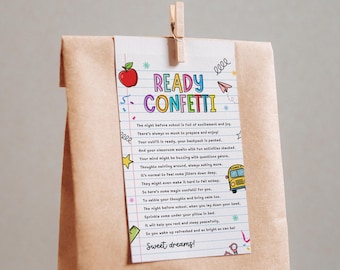 READY
CONFETTI
The night before school is full of excitement and joy,
There's always so much to prepare and enjoy!
Your outfit is ready, your backpack is packed,
And your classroom awaits with fun activities stacked.
Your mind might be buzzing with questions galore,
Thoughts swirling around, always asking more.
It's normal to feel some jitters down deep,
They might even make it hard to fall asleep.
So here's some magic confetti for you,
To settle your thoughts and bring calm too.
The night before school, when you lay down your head,
Sprinkle some under your pillow in bed.
It will help you rest and sleep peacefully,
So you wake up refreshed and as bright as can be!
Sweet dreams!